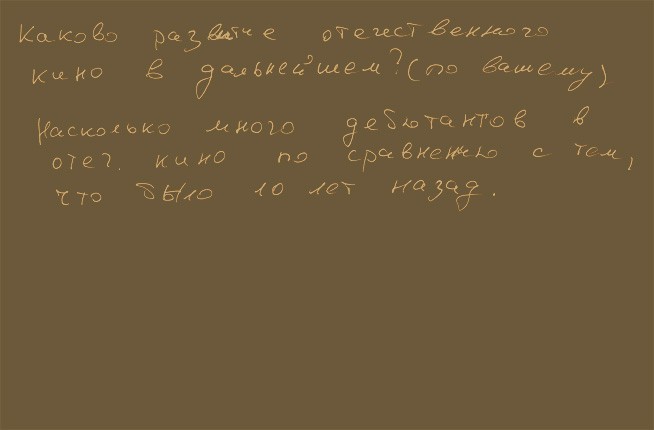 Каково развитие отечественного
кино в дальнейшем? (по вашему)
Насколько много дебютантов в
отеч. кино по сравнению с тем,
что было 10 лет назад.